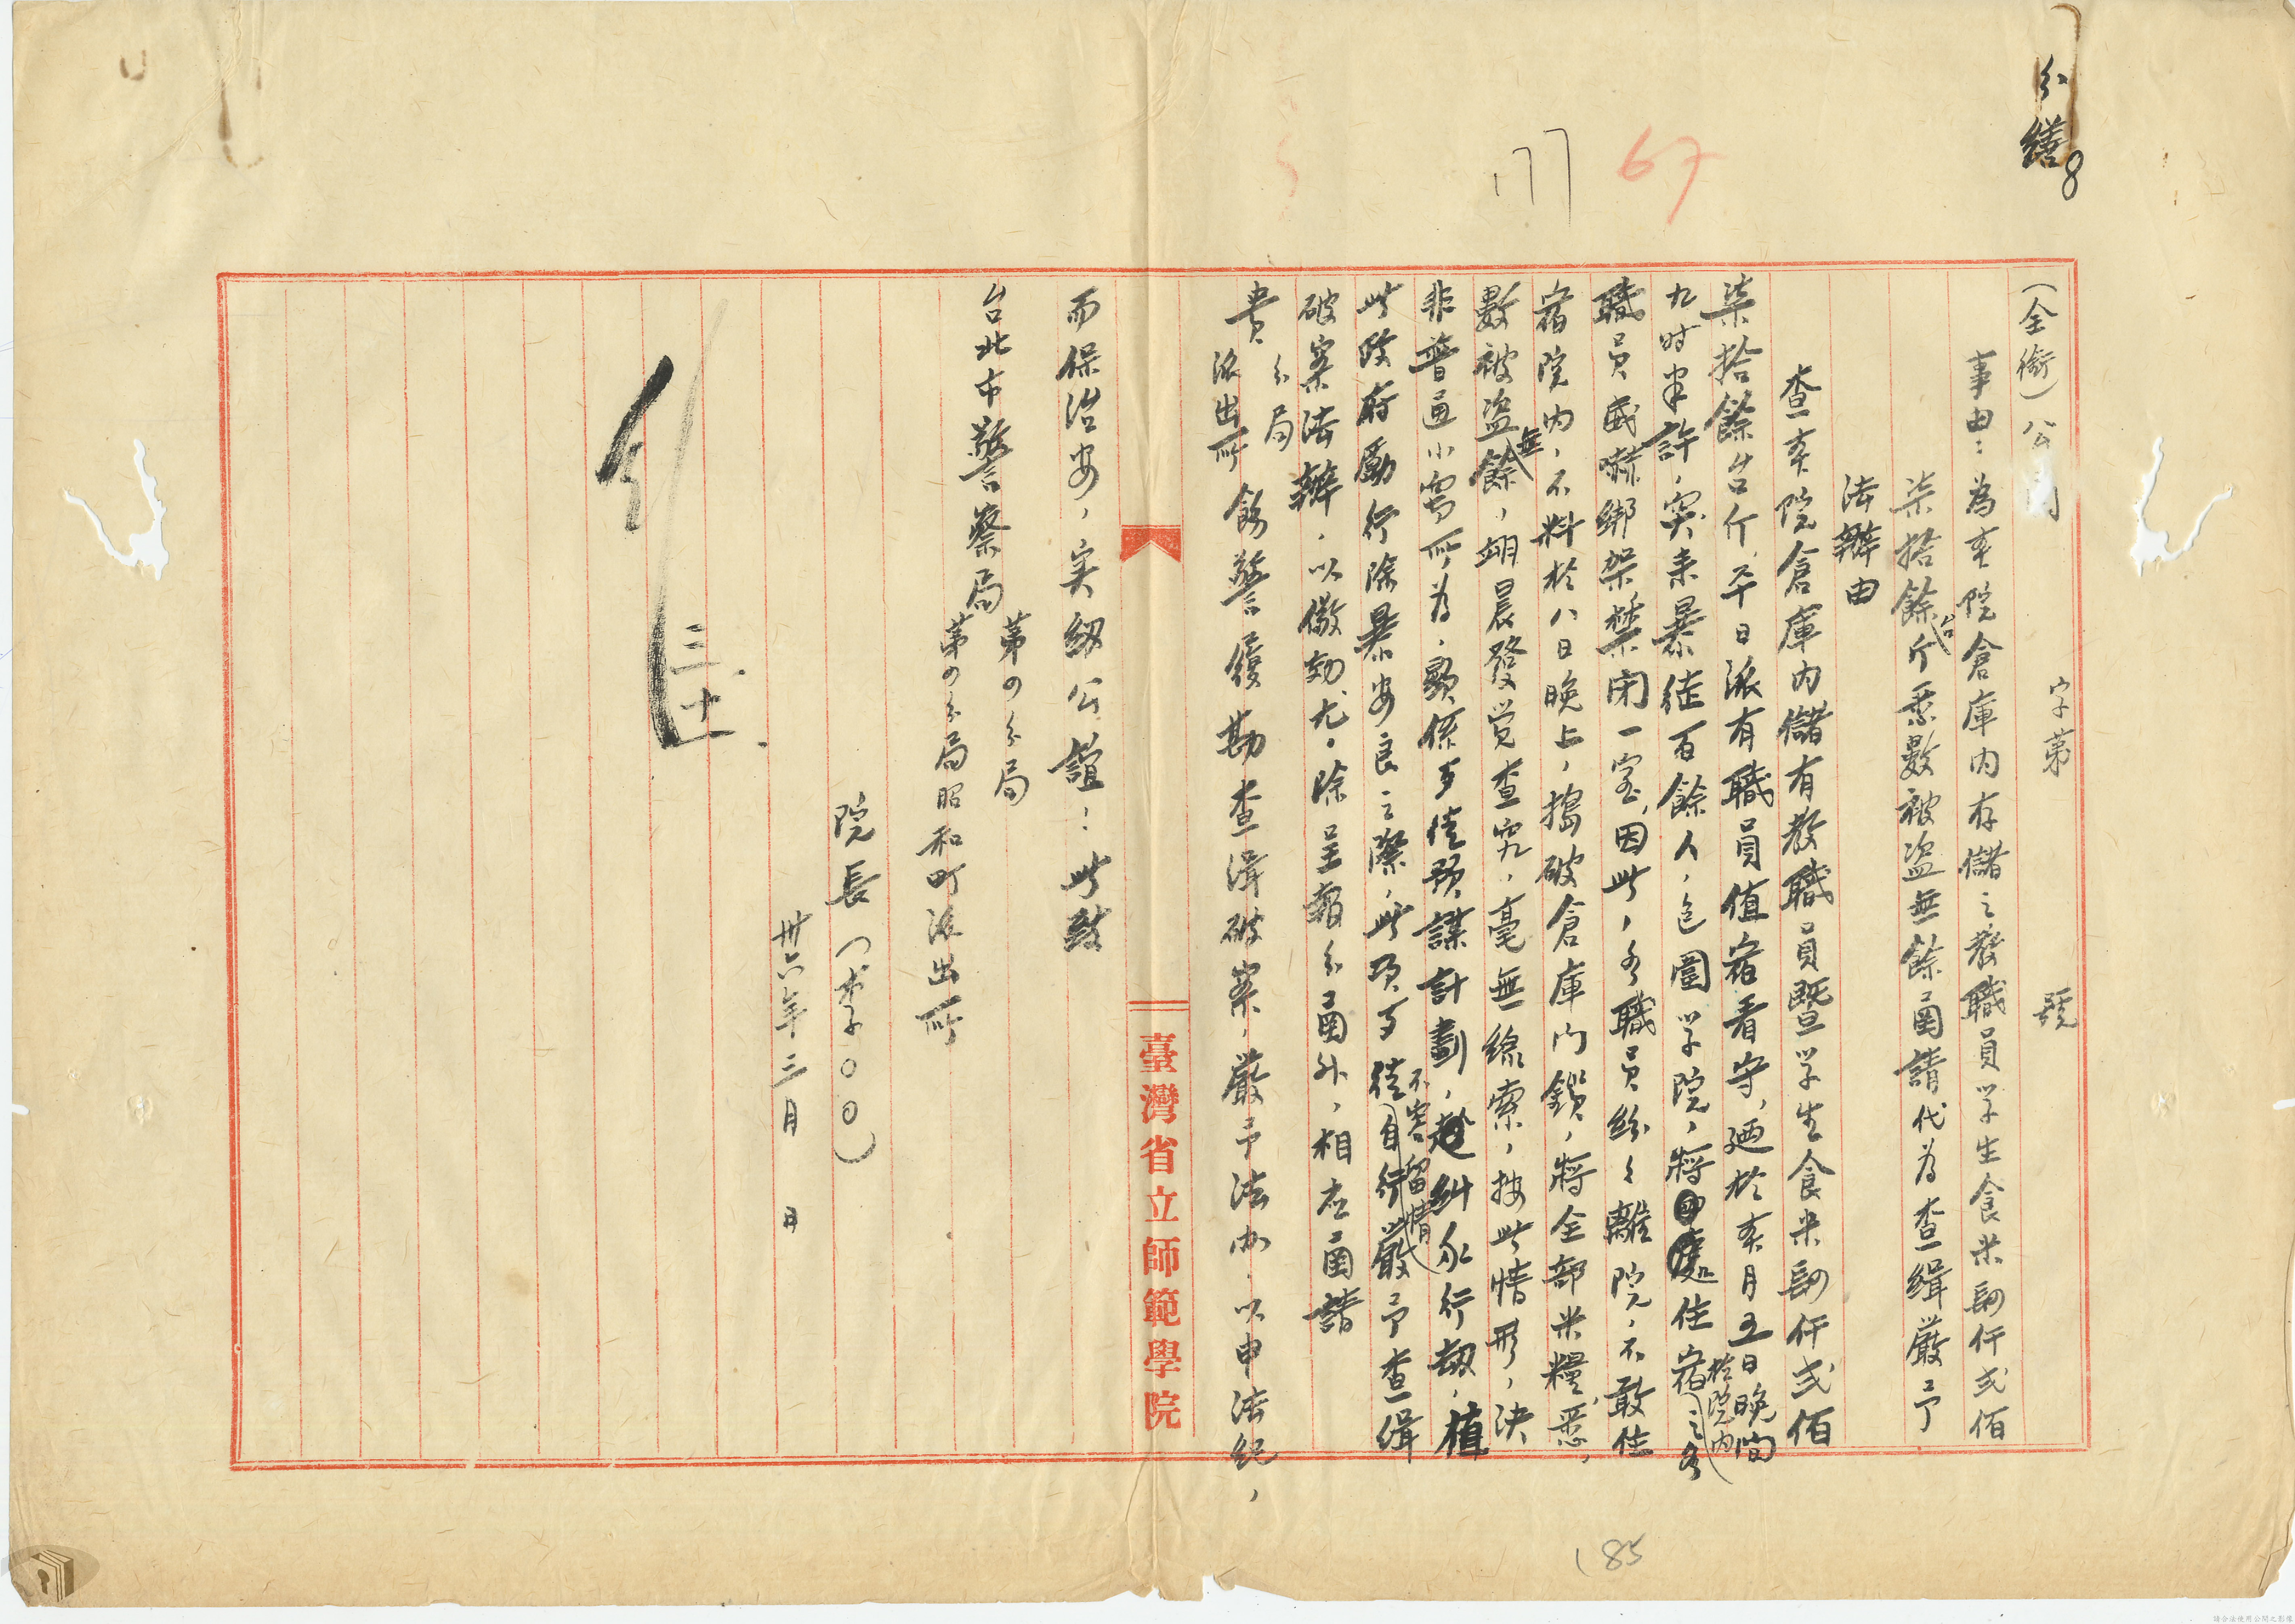 分繕
8
67
177
(全銜)公函 字第 號
事由:為本院倉庫內存儲之教職員学生食米肆仟弍佰
柒拾餘台斤悉數被盜無餘函請代為查緝嚴予
法辦由
查本院倉庫內儲有教職員暨学生食米肆仟弍佰
柒拾餘台斤,平日派有職員值宿看守,廼於本月五日晚間
九时半許,突来暴徒百餘人,包圍学院,將住宿於院内之各
職員威嚇綁架禁闭一室,因此,各職員紛々離院,不敢住
宿院内,不料於八日晚上,搗破倉庫门鎖,將全部米糧,悉
數被盜無餘,翊晨發觉查究,毫無線索,按此情形,決
非普通小竊所為,顯係歹徒預謀計劃,糾众行劫,值
此政府勵行除暴安良之際,此項歹徒不容留情嚴予查緝
破案法辦,以儆効尤。除呈報分函外,相应函請
貴 分局 派出所 飭警履勘查緝破案,嚴予法办,以申法紀,
而保治安,实紉公誼:此致
台北市警察局 第四分局
第四分局昭和町派出所
院長(李〇〇)
卅六年三月 日
三
十
臺灣省立師範學院
185